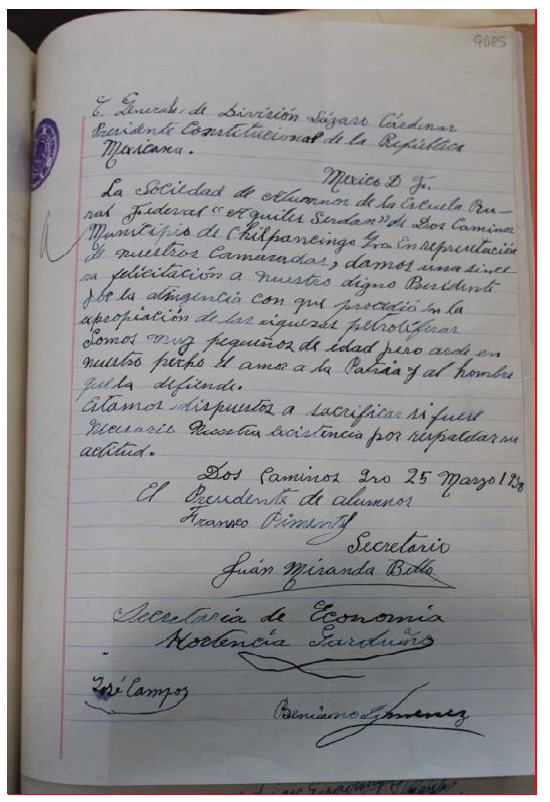 9085
C. General de División Lázaro Cárdenas
Presidente Constitucional de la República
Mexicana.
Mexico D. F.
La Sociedad de Alumnos de la Escuela Ru-
ral Federal "Aquiles Serdan" de Dos Caminos
Municipio de Chilpancingo Gro. En representación
de nuestros Camaradas, damos una since
ra felicitación a nuestro digno Presidente
por la atingencia con que procedió en la
expropiación de las riquezas petroliferas
Somos muy pequeños de edad pero arde en
nuestro pecho el amor a la Patria y al hombre
que la defiende.
Estamos dispuestos a sacrificar si fuese
necesario nuestra existencia por respaldar su
actitud.
Dos Caminos Gro 25 Marzo 1938
El Presidente de alumnos
Pimentel
Secretario
Juán Miranda Bello
Secretaria de Economía
Hortencia Garduño
José Campos
Jimenez